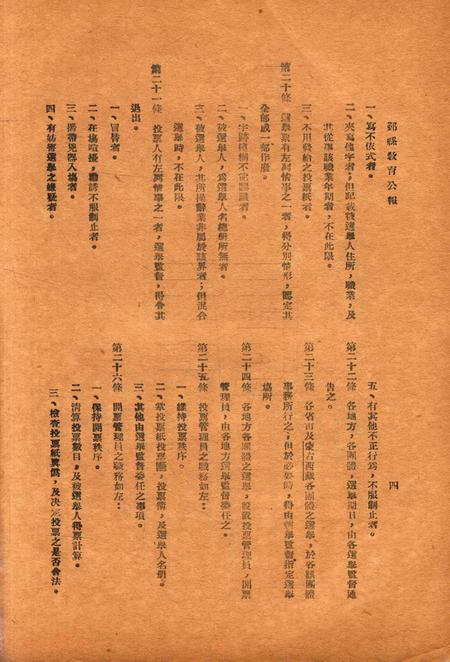 鄞縣教育公報
一、寫不依式者。
二、夾寫他字者；但記載被選舉人住所，職業，及
其從事該職業年期者，不在此限。
三、不用發給之投票紙者。
第二十條　選舉票有左列情事之一者，得分別情形，認定其
全部或一部作廢。
一、字跡模糊不能認識者。
二、被選舉人，爲選舉人名總册所無者。
三、被選舉人，其所從職業非屬於該界者；但混合
選舉時，不在此限。
第二十一條　投票人有左列情事之一者，選舉監督，得令其
退出。
一、冒替者。
二、在塲喧擾，勸誘不服制止者。
三、攜帶兇器入塲者。
四、有妨害選舉之嫌疑者。
四
五、有其他不正行爲，不服制止者。
第二十二條　各地方，各團體，選舉期日，由各選舉監督通
告之。
第二十三條　各省市及蒙古西藏各團體之選舉，於各該團體
事務所行之；但於必要時，得由選舉監督指定選舉
塲所。
第二十四條　各地方各團體之選舉，設置投票管理員，開票
管理員，由各地方選舉監督委任之。
第二十五條　投票管理員之職務如左：
一、維持投票秩序。
二、掌投票紙投票匭，投票簿，及選舉人名册。
三、其他由選舉監督委任之事項。
第二十六條　開票管理員之職務如左：
一、保持開票秩序。
二、清算投票數目，及被選舉人得票計算。
三、檢查投票紙眞僞，及決定投票之是否合法。